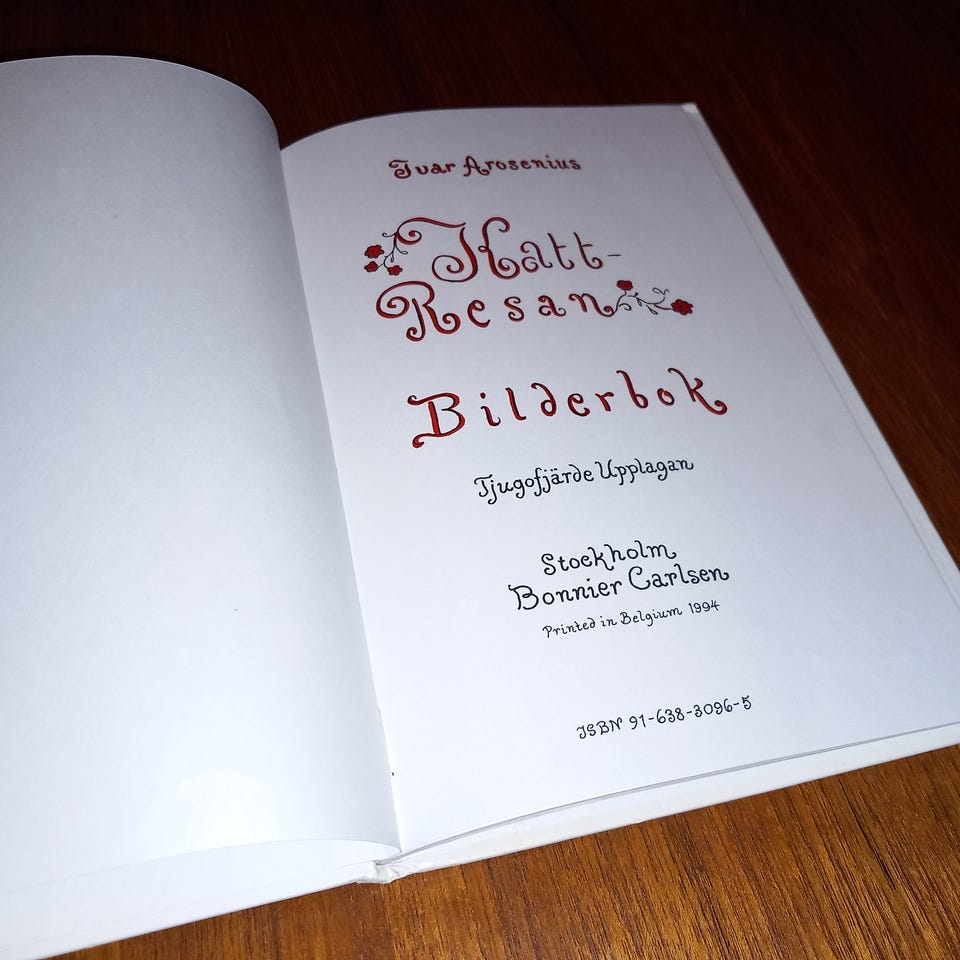 Ivar Arosenius
Katt-
Resan
Bilderbok
Tjugofjärde Upplagan
Stockholm
Bonnier Carlsen
Printed in Belgium 1994
ISBN 91-638-3096-5